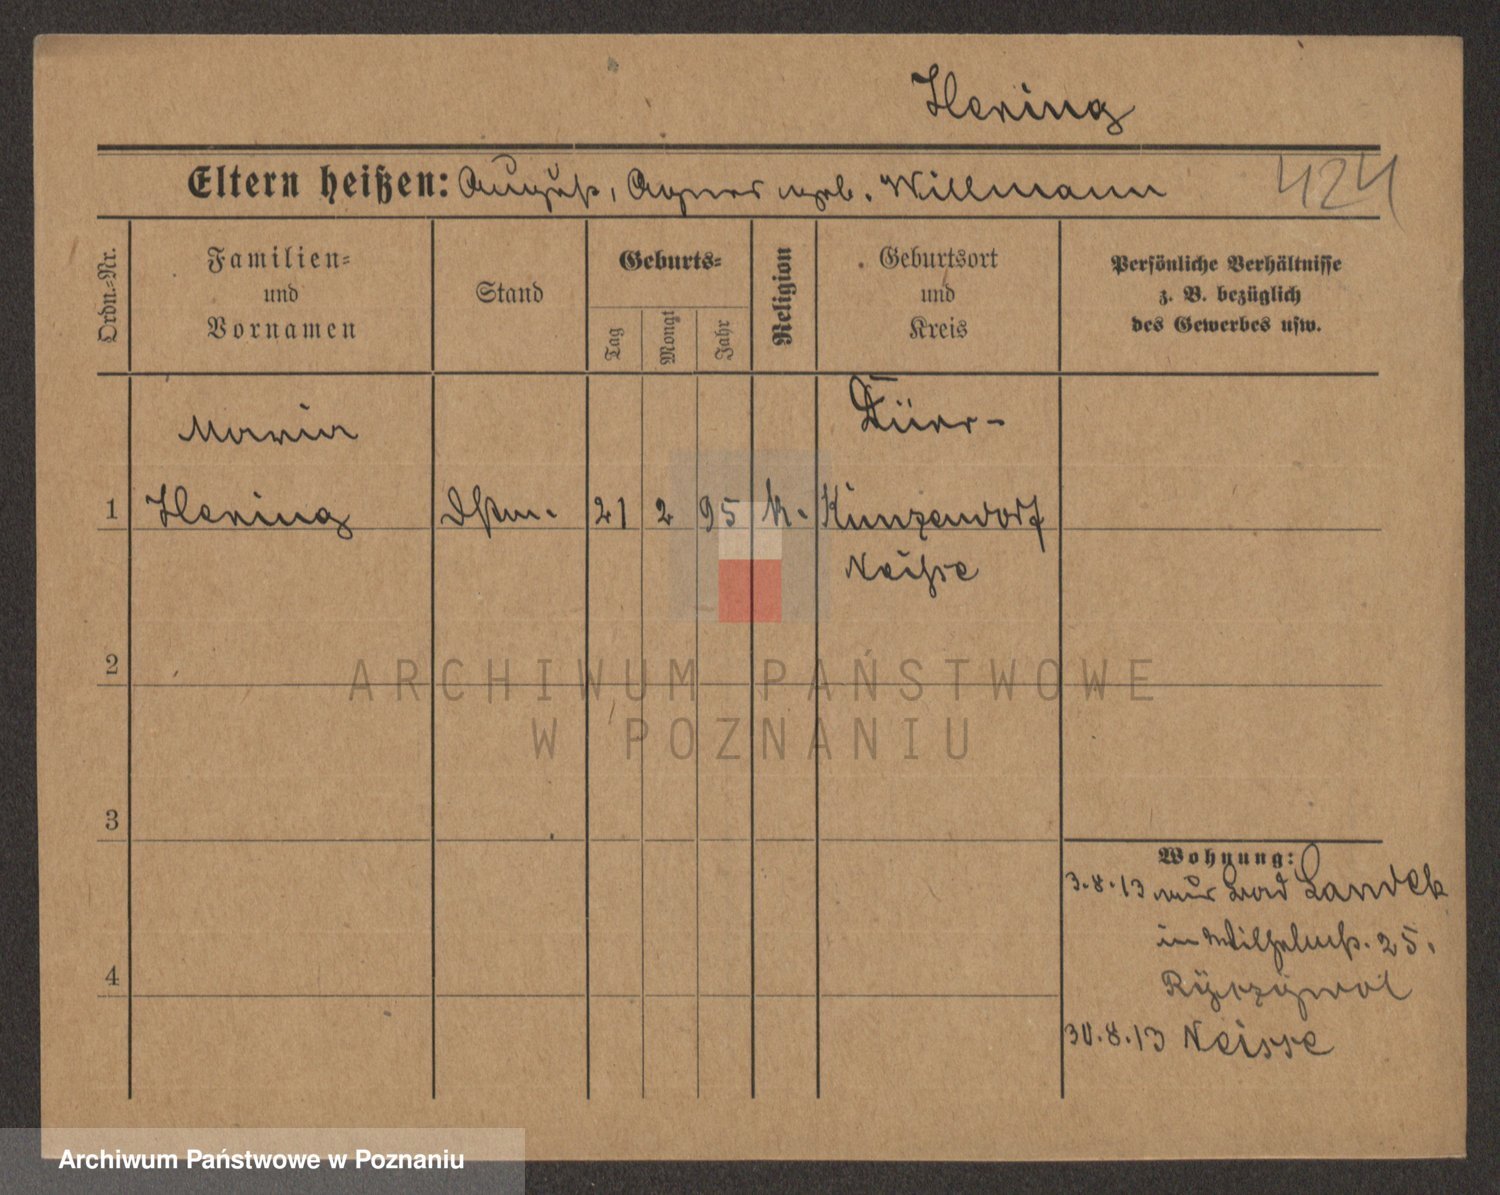 Hering
Eltern heißen: August, Agnes geb. Willmann
424
Ordn.-Nr.
Familien-
und
Vornamen
Stand
Geburts-
Tag
Monat
Jahr
Religion
Geburtsort
und
Kreis
Persönliche Verhältnisse
z. B. bezüglich
des Gewerbes usw.
Maria
Dürr-
1 Hering Dstm. 21 2 95 k. Kunzendorf
Neisse
2
ARCHIWUM PAŃSTWOWE
W POZNANIU
3
Wohnung:
3.8.13 Bad Landek
in Wilhelmst. 25.
4
30.8.13 Neisse
Archiwum Państwowe w Poznaniu